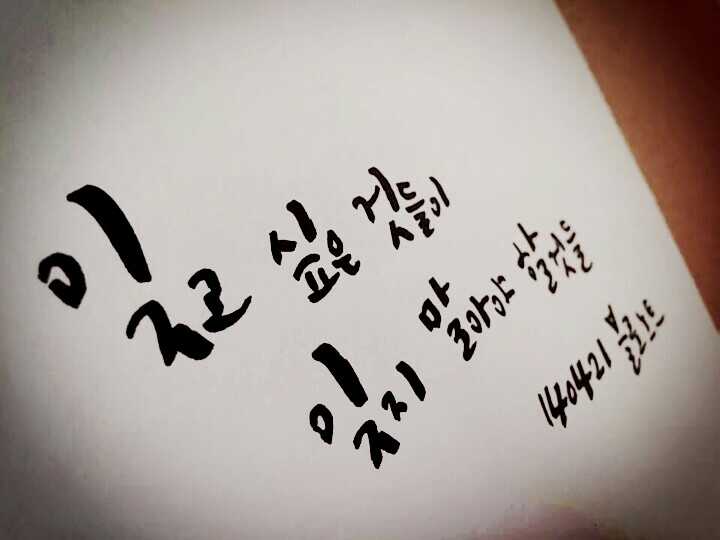 잊고 싶은 것들이
잊지 말아야 할 것들
140421